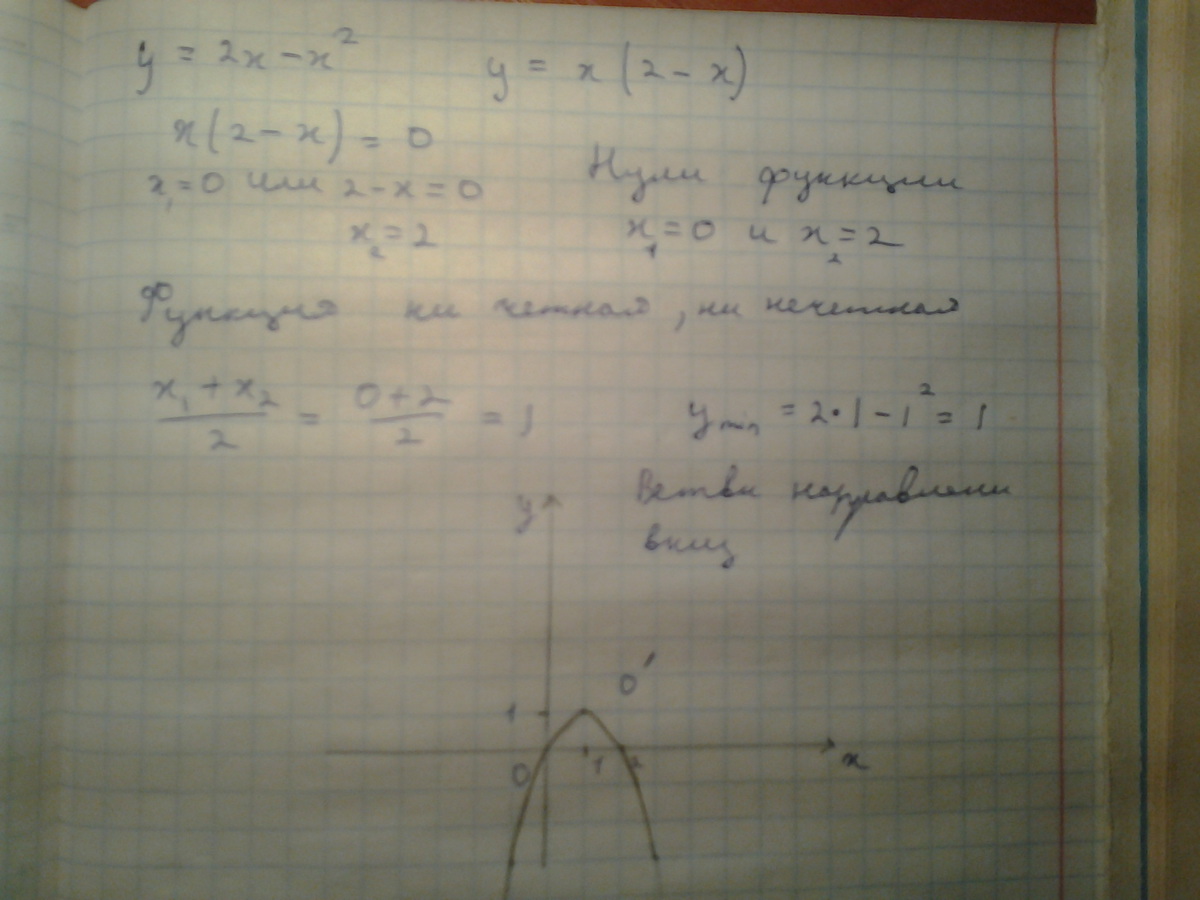 y = 2x - x²
y = x(2 - x)
x(2 - x) = 0
x₁ = 0 или 2 - x = 0
x₂ = 2
Нули функции
x₁ = 0 и x₂ = 2
Функция ни четная, ни нечетная
(x₁ + x₂)/2 = (0 + 2)/2 = 1
y min = 2·1 - 1² = 1
Ветви направлени
вниз
y
O′
1
0 1 2 x